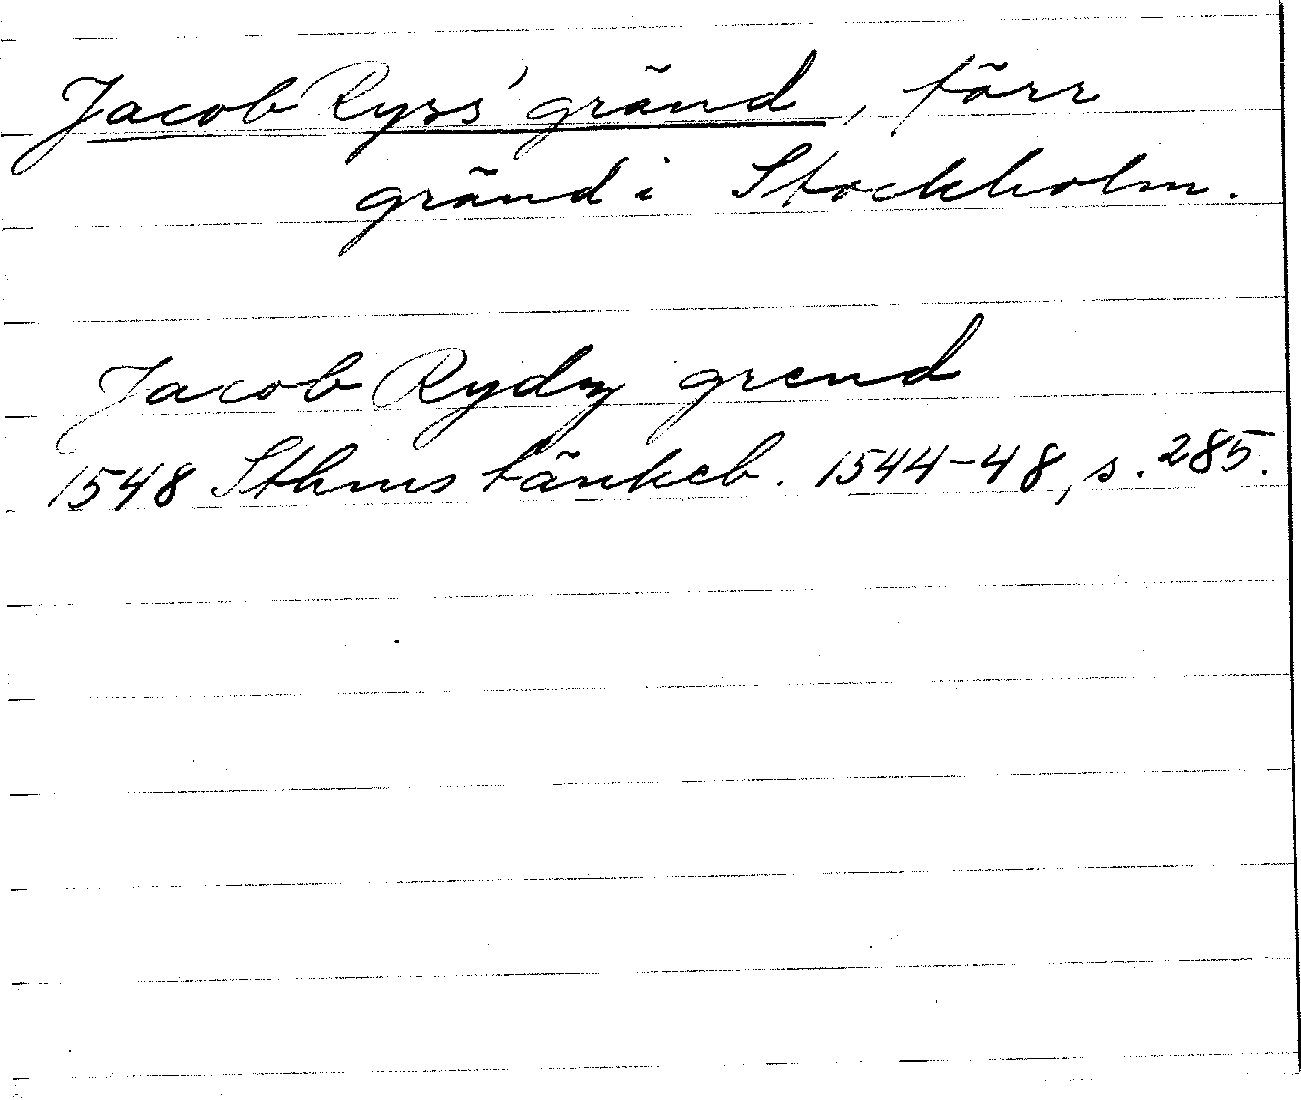 Jacob Ryss' gränd, förr
gränd i Stockholm.
Jacob Rydz grend
1548 Sthms tänkeb. 1544-48, s. 285.